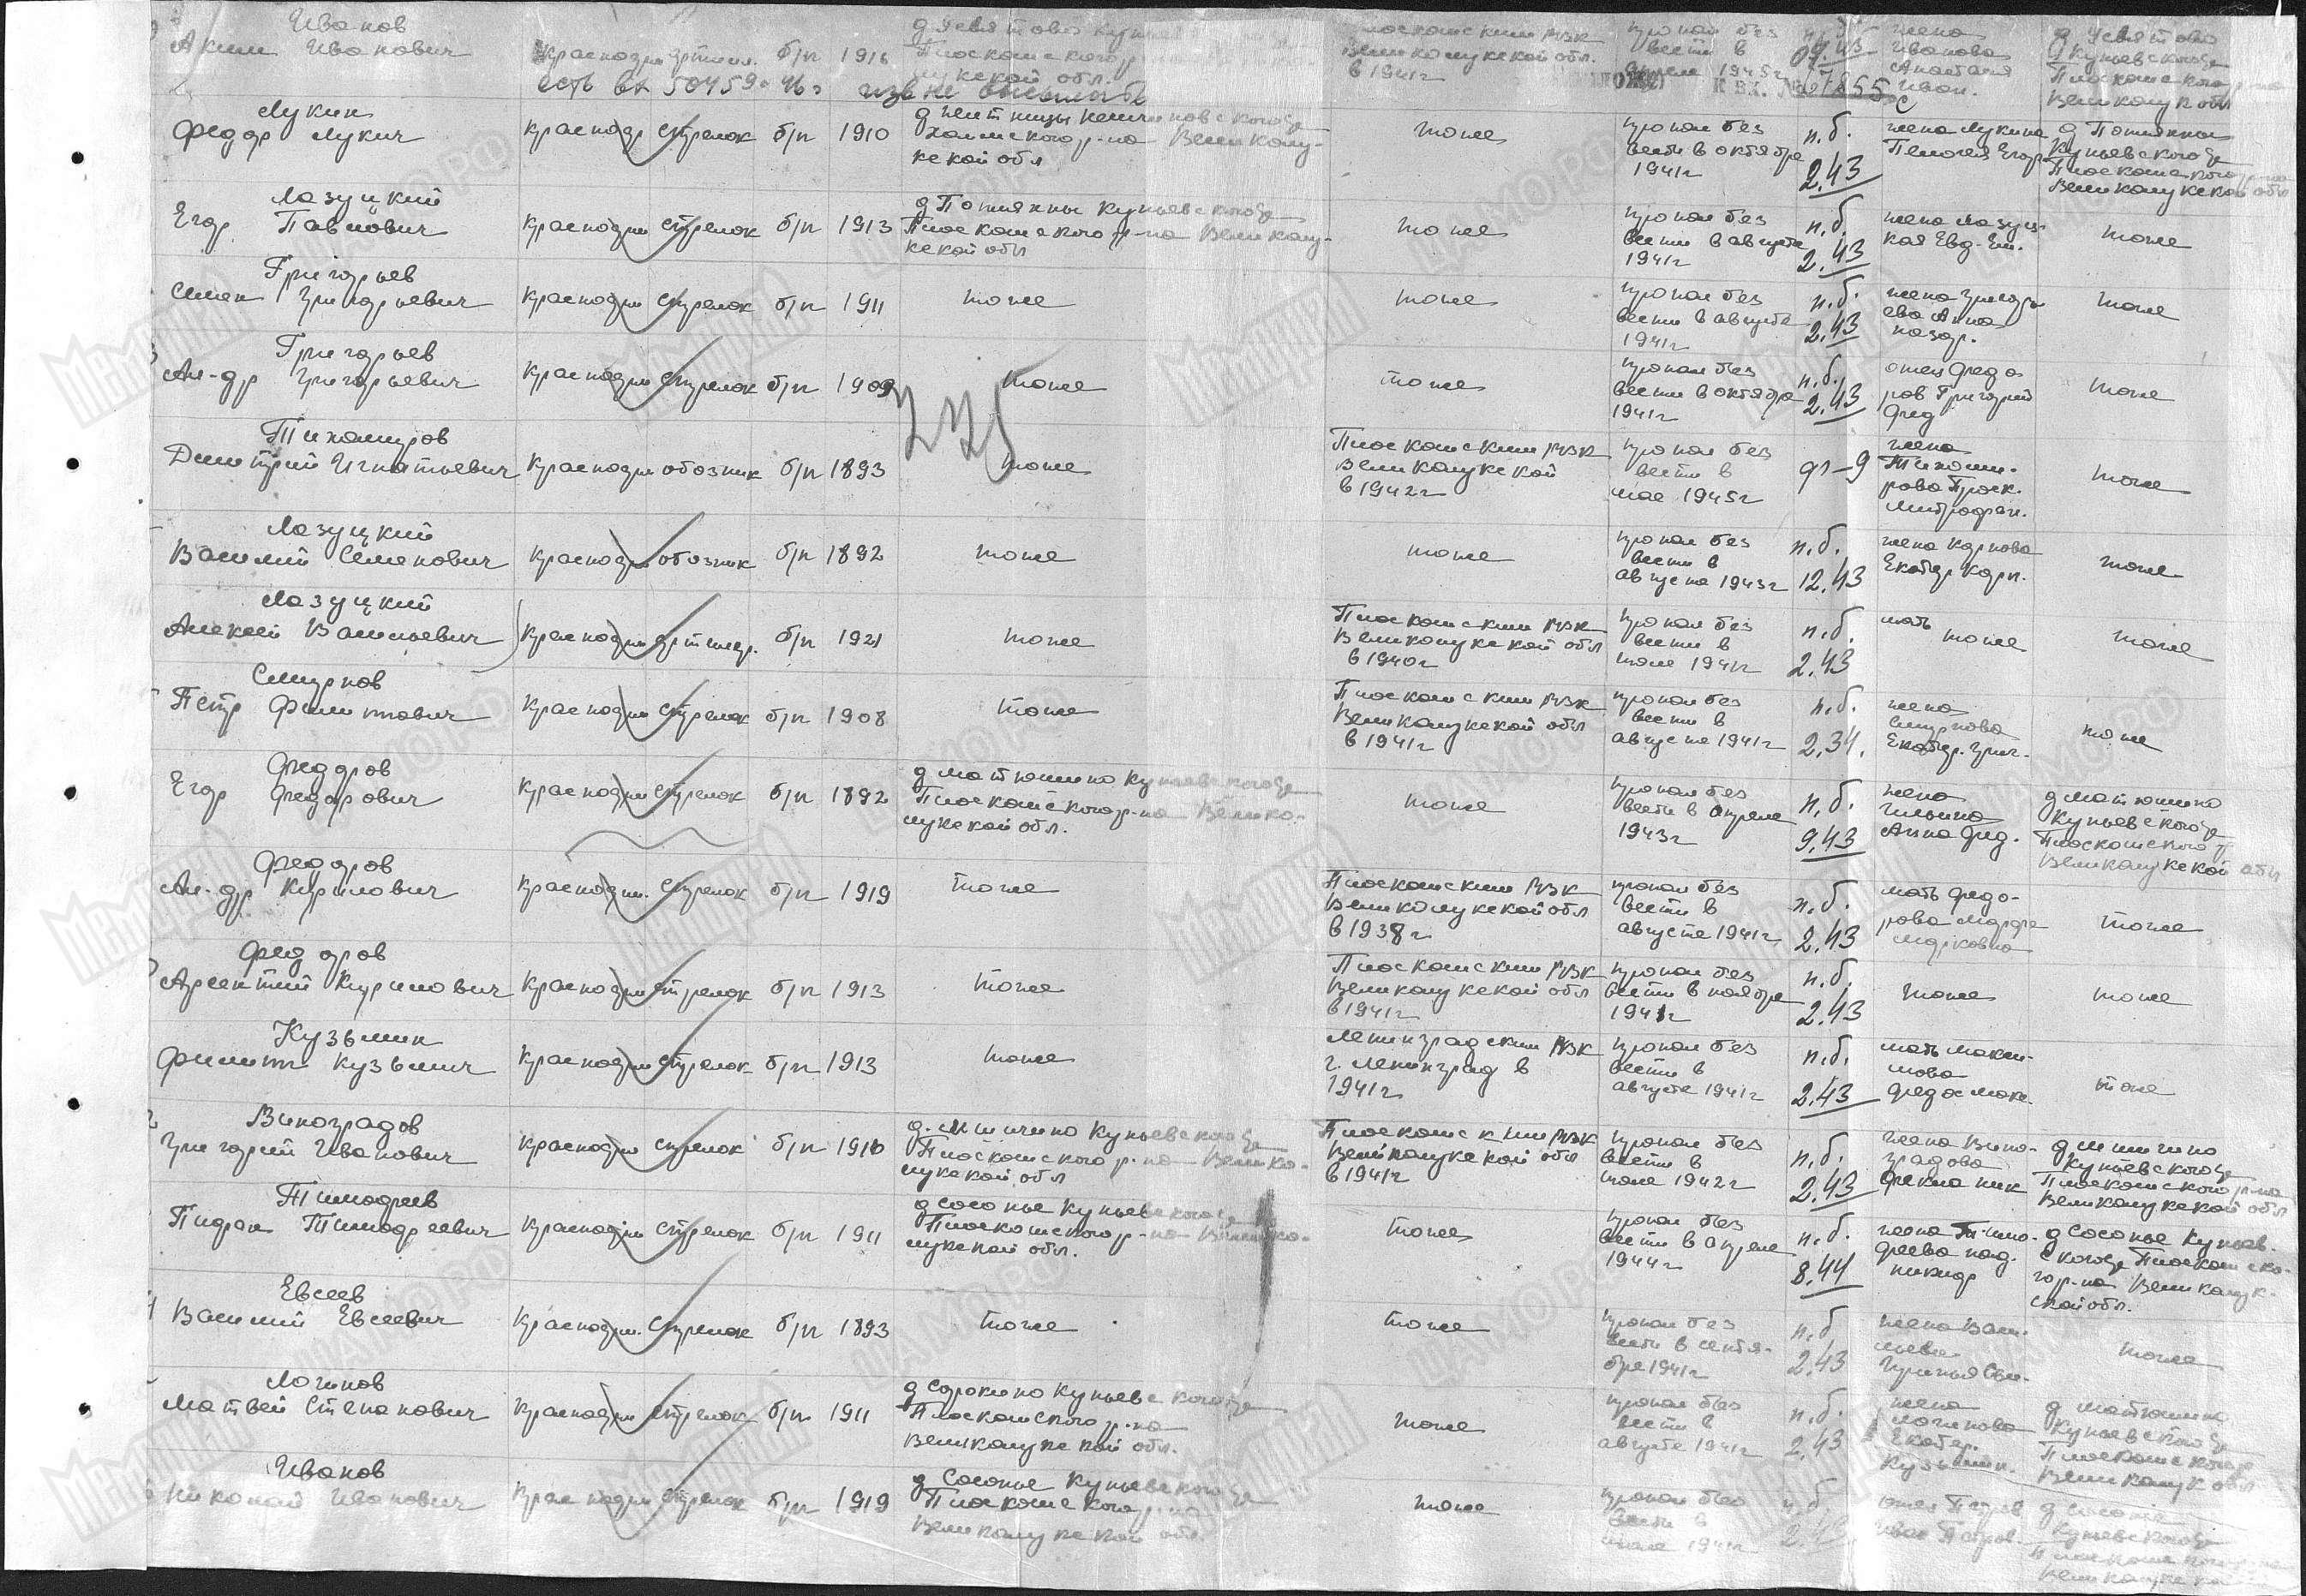 Иванов
Аким Иванович красноарм. артил. б/п 1916
Плоскошским РВК пропал без жена д Девятово
Великолукской обл. вести в 04.43 Иванова Куньевского с/с
в 1941г апреле 1945г Анастасия Плоскошского р-на
Иван. Великолук обл
есть вх 50459-46г изв не высылать
К ВХ. № 67855с
Лукин
Федор Лукич красноар стрелок б/п 1910
Холмского р-на Великолукской обл
тоже пропал без вести в октябре 1941г п.б. 2.43 жена Лукина Пелагея Егор. д Поткякны Куньевского с/с Плоскошского р-на Великолукской обл
Лазуцкий
Егор Павлович красноарм стрелок б/п 1913
Куньевского с/с Плоскошского р-на Великолукской обл
тоже пропал без вести в августе 1941г п.б. 2.43 жена Лазуцкая Евд. Еш. тоже
Григорьев
Семен Григорьевич красноарм стрелок б/п 1911 тоже
тоже пропал без вести в августе 1941г п.б. 2.43 жена Григорьева Анна Назар. тоже
Григорьев
Ал-др Григорьевич красноарм стрелок б/п 1909 тоже
тоже пропал без вести в октябре 1941г п.б. 2.43 отец Федоров Григорий Фед тоже
225
Тихомиров
Дмитрий Игнатьевич красноарм обозник б/п 1893 тоже
Плоскошским РВК Великолукской в 1942г пропал без вести в мае 1945г жена Тихомирова Проск. Митрофан. тоже
Лазуцкий
Василий Семенович красноарм обозник б/п 1892 тоже
тоже пропал без вести в августа 1943г п.б. 12.43 жена Карпова Екатер Карп. тоже
Лазуцкий
Алексей Васильевич красноарм артиллер. б/п 1921 тоже
Плоскошским РВК Великолукской обл в 1940г пропал без вести в июле 1941г п.б. 2.43 мать тоже тоже
Смирнов
Петр Филиппович красноарм стрелок б/п 1908 тоже
Плоскошским РВК Великолукской обл в 1941г пропал без вести в августе 1941г п.б. 2.34. жена Смирнова Екатер. Григ. тоже
Федоров
Егор Федорович красноарм стрелок б/п 1892 д Матюшино Куньевского с/с Плоскошского р-на Великолукской обл.
тоже пропал без вести в апреле 1943г п.б. 9.43 жена Ильина Анна Фед. д Матюшино Куньевского с/с Плоскошского р Великолукской обл
Федоров
Ал-др Кирилович красноарм. стрелок б/п 1919 тоже
Плоскошским РВК Великолукской обл в 1938г пропал без вести в августе 1941г п.б. 2.43 мать Федорова Марфа Марковна тоже
Федоров
Арсентий Кирилович красноарм стрелок б/п 1913 тоже
Плоскошским РВК Великолукской обл в 1941г пропал без вести в ноябре 1941г п.б. 2.43 тоже тоже
Кузьмин
Филипп Кузьмич красноарм стрелок б/п 1913 тоже
Ленинградским РВК г. Ленинград в 1941г пропал без вести в августе 1941г п.б. 2.43 мать Максимова Федос Макс. тоже
Виноградов
Григорий Иванович красноарм стрелок б/п 1910 д. Мишино Куньевского с/с Плоскошского р-на Великолукской обл
Плоскошским РВК Великолукской обл в 1941г пропал без вести в июле 1942г п.б. 2.43 жена Виноградова Фекла Ник д Мишино Куньевского с/с Плоскошского р-на Великолукской обл
Тимофеев
Тимофеевич красноарм стрелок б/п 1911 д Сосонье Куньевского с/с Плоскошского р-на Великолукской обл.
тоже пропал без вести в апреле 1944г п.б. 8.44 жена Тимофеева Над. Никиф д Сосонье Куньевского с/с Плоскошского р-на Великолукской обл.
Евсеев
Василий Евсеевич красноарм. стрелок б/п 1893 тоже
тоже пропал без вести в сентябре 1941г п.б 2.43 жена Васильева тоже
Логинов
Матвей Степанович красноарм стрелок б/п 1911 д Сорокино Куньевского с/с Плоскошского р-на Великолукской обл.
тоже пропал без вести в августе 1941г п.б. 2.43 жена Логинова Екатер. Кузьмин. д Матюшино Куньевского с/с Плоскошского р Великолук обл
Иванов
Николай Иванович красноарм стрелок б/п 1919 д Сосонье Куньевского с/с Плоскошского р-на Великолукской обл.
тоже пропал без вести в июле 1941г п.б 2.43 отец Петров Иван Петров. д Сосонье Куньевского с/с Плоскошского р-на